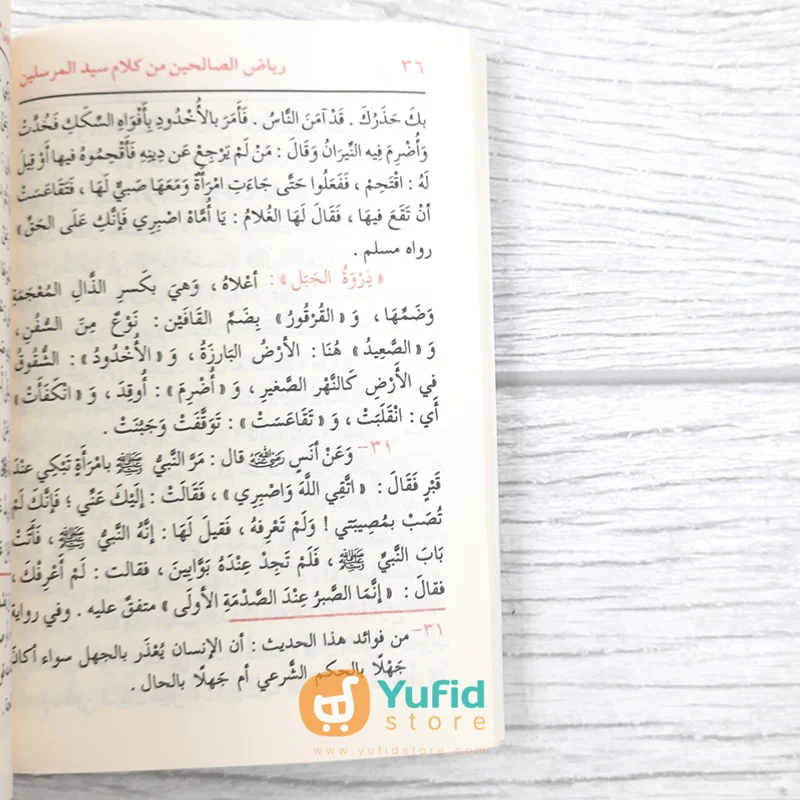 ٣٦
رياض الصالحين من كلام سيد المرسلين
بكَ حَذَرُكَ . قَدْ آمَنَ النَّاسُ . فَأَمَرَ بالأُخْدُودِ بِأَفْوَاهِ السِّكَكِ فَخُدَّتْ
وَأُضْرِمَ فيه النِّيرَانُ وَقَالَ : مَنْ لَمْ يَرْجِعْ عَن دِينِهِ فَأَقْحِمُوهُ فيها أَوْ قِيلَ
لَهُ : اقْتَحِمْ ، فَفَعَلُوا حَتَّى جَاءَتِ امْرَأَةٌ وَمَعَهَا صَبِيٌّ لَهَا ، فَتَقَاعَسَتْ
أنْ تَقَعَ فيهَا ، فَقَالَ لَهَا الغُلامُ : يَا أُمَّاهْ اصْبِرِي فَإِنَّكِ عَلَى الحَقِّ»
رواه مسلم .
«ذِرْوَةُ الجَبَلِ» : أعْلاهُ ، وَهيَ بكَسرِ الذَّالِ المُعْجَمَةِ
وَضَمِّهَا ، وَ«القُرْقُورُ» بِضَمِّ القَافَيْنِ : نَوْعٌ مِنَ السُّفُنِ ،
وَ«الصَّعِيدُ» هُنَا : الأرْضُ البَارِزَةُ ، وَ«الأُخْدُودُ» : الشُّقُوقُ
في الأَرْضِ كَالنَّهْرِ الصَّغيرِ ، وَ«أُضْرِمَ» : أُوقِدَ ، وَ«انْكَفَأَتْ»
أَي : انْقَلَبَتْ ، وَ«تَقَاعَسَتْ» : تَوَقَّفَتْ وَجَبُنَتْ .
٣١- وَعَنْ أنَسٍ رضي الله عنه قال : مَرَّ النَّبيُّ ﷺ بامْرَأَةٍ تَبْكِي عِنْدَ
قَبْرٍ فَقَالَ : «اتَّقِي اللَّهَ وَاصْبِرِي» ، فَقَالَتْ : إلَيْكَ عَنِّي ؛ فَإِنَّكَ لَمْ
تُصَبْ بمُصِيبَتي ! وَلَمْ تَعْرِفهُ ، فَقيلَ لَهَا : إنَّهُ النَّبيُّ ﷺ ، فَأَتَتْ
بَابَ النَّبيِّ ﷺ ، فَلَمْ تَجِدْ عِنْدَهُ بَوَّابينَ ، فقالت : لَمْ أَعْرِفْكَ ،
فقالَ : «إنَّمَا الصَّبرُ عِنْدَ الصَّدْمَةِ الأولَى» متفقٌ عليه . وفي رواية
٣١- من فوائد هذا الحديث : أن الإنسان يُعْذَر بالجهل سواء أكانَ
جَهْلًا بالحكم الشَّرعي أم جَهلًا بالحال .
Yufid
store
www.yufidstore.com